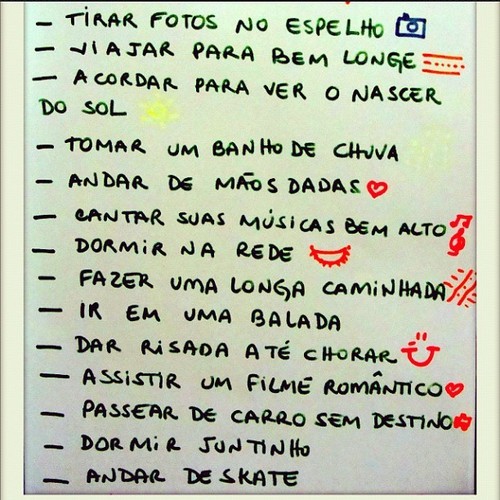 - TIRAR FOTOS NO ESPELHO
- VIAJAR PARA BEM LONGE
- ACORDAR PARA VER O NASCER
DO SOL
- TOMAR UM BANHO DE CHUVA
- ANDAR DE MÃOS DADAS
- CANTAR SUAS MÚSICAS BEM ALTO
- DORMIR NA REDE
- FAZER UMA LONGA CAMINHADA
- IR EM UMA BALADA
- DAR RISADA ATÉ CHORAR
- ASSISTIR UM FILME ROMÂNTICO
- PASSEAR DE CARRO SEM DESTINO
- DORMIR JUNTINHO
- ANDAR DE SKATE